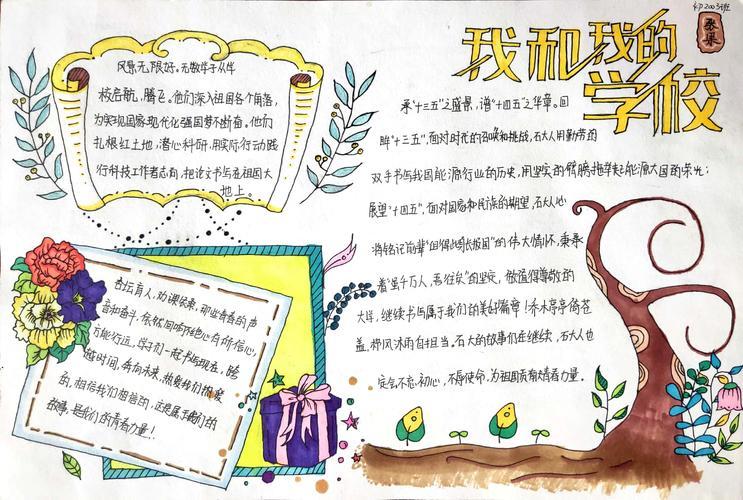 我和我的
学校
风景无限好。无数年子从伴
校启航,腾飞。他们深入祖国各个角落,
为实现国家现代化强国梦不断奋。他们
扎根红土地,潜心科研,用实际行动践
行科技工作者志向,把论文书写在祖国大
地上。
承"十三五"之盛景,谱"十四五"之华章。回
眸"十三五",面对时代的召唤和挑战,石大人用勤劳的
双手书写我国能源行业的历史,用坚实的臂膀托举起能源大国的荣光;
展望"十四五",面对国家和民族的期望,石大人也
将铭记前辈"但得此身长报国"的伟大情怀,秉承
着"虽千万人,吾往矣"的坚定,做值得尊敬的
大写,继续书写属于我们的美好篇章!乔木亭亭倚苍
盖,栉风沐雨自担当。石大的故事仍在继续,石大人也
定会不忘初心,不辱使命,为祖国贡献青春力量。
杏坛育人,劝课农桑,那些青春的声
音和奋斗,依然回响不绝有所信心,
方能行远,学子们一起书写现在,
时间,奔向未来,热爱我们相爱
的,相信我们相信的,这是属于我们的
故事,是我们的青春力量!!